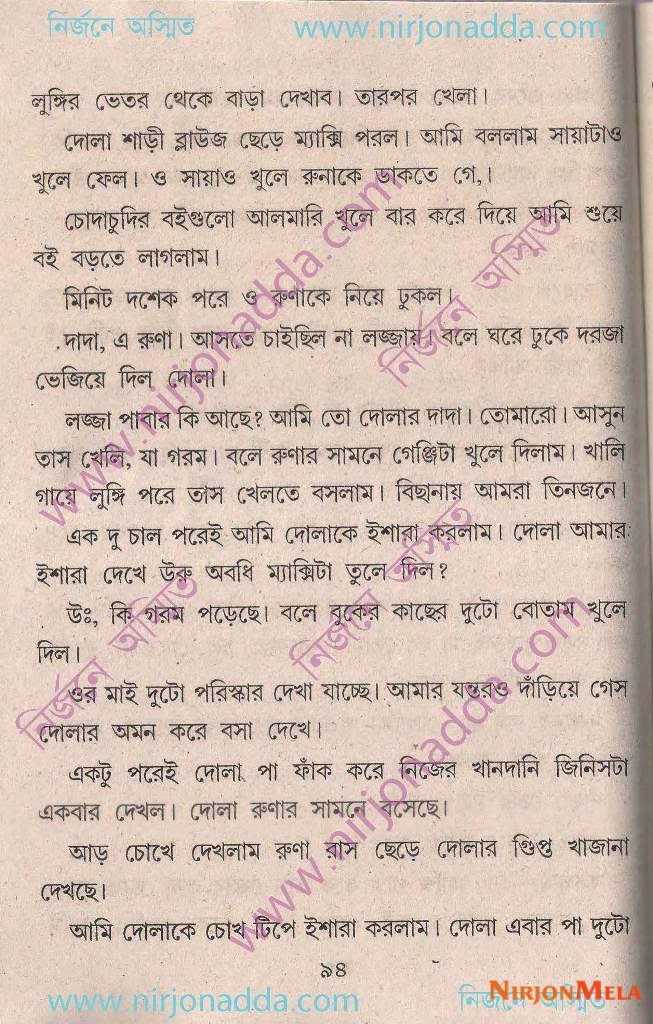 নির্জনে অস্মিত www.nirjonadda.com
লুঙ্গির ভেতর থেকে বাড়া দেখাব। তারপর খেলা।
দোলা শাড়ী ব্লাউজ ছেড়ে ম্যাক্সি পরল। আমি বললাম সায়াটাও
খুলে ফেল। ও সায়াও খুলে রুনাকে ডাকতে গে,।
চোদাচুদির বইগুলো আলমারি খুলে বার করে দিয়ে আমি শুয়ে
বই বড়তে লাগলাম।
মিনিট দশেক পরে ও রুণাকে নিয়ে ঢুকল।
.দাদা, এ রুণা। আসতে চাইছিল না লজ্জায়। বলে ঘরে ঢুকে দরজা
ভেজিয়ে দিল দোলা।
লজ্জা পাবার কি আছে? আমি তো দোলার দাদা। তোমারো। আসুন
তাস খেলি, যা গরম। বলে রুণার সামনে গেঞ্জিটা খুলে দিলাম। খালি
গায়ে লুঙ্গি পরে তাস খেলতে বসলাম। বিছানায় আমরা তিনজনে।
এক দু চাল পরেই আমি দোলাকে ইশারা করলাম। দোলা আমার
ইশারা দেখে উরু অবধি ম্যাক্সিটা তুলে দিল?
উঃ, কি গরম পড়েছে। বলে বুকের কাছের দুটো বোতাম খুলে
দিল।
ওর মাই দুটো পরিস্কার দেখা যাচ্ছে। আমার যন্তরও দাঁড়িয়ে গেস
দোলার অমন করে বসা দেখে।
একটু পরেই দোলা পা ফাঁক করে নিজের খানদানি জিনিসটা
একবার দেখল। দোলা রুণার সামনে বসেছে।
আড় চোখে দেখলাম রুণা রাস ছেড়ে দোলার গুিপ্ত খাজানা
দেখছে।
আমি দোলাকে চোখ টিপে ইশারা করলাম। দোলা এবার পা দুটো
৯৪
www.nirjonadda.com নির্জনে অস্মিত
NIRJONMELA
www.nirjonadda.com
নির্জনে অস্মিত
নির্জনে অস্মিত
নির্জনে অস্মিত
www.nirjonadda.com